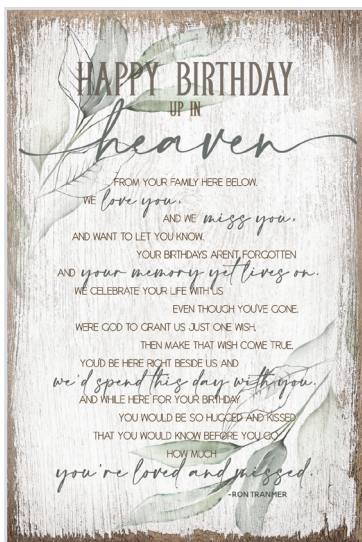 HAPPY BIRTHDAY
UP IN
heaven
FROM YOUR FAMILY HERE BELOW,
WE love you,
AND WE miss you,
AND WANT TO LET YOU KNOW.
YOUR BIRTHDAYS ARENT FORGOTTEN
AND your memory yet lives on.
WE CELEBRATE YOUR LIFE WITH US
EVEN THOUGH YOU'VE GONE,
WERE GOD TO GRANT US JUST ONE WISH,
THEN MAKE THAT WISH COME TRUE,
YOU'D BE HERE RIGHT BESIDE US AND
we'd spend this day with you.
AND WHILE HERE FOR YOUR BIRTHDAY
YOU WOULD BE SO HUGGED AND KISSED
THAT YOU WOULD KNOW BEFORE YOU GO
HOW MUCH
you're loved and missed.
-RON TRANMER